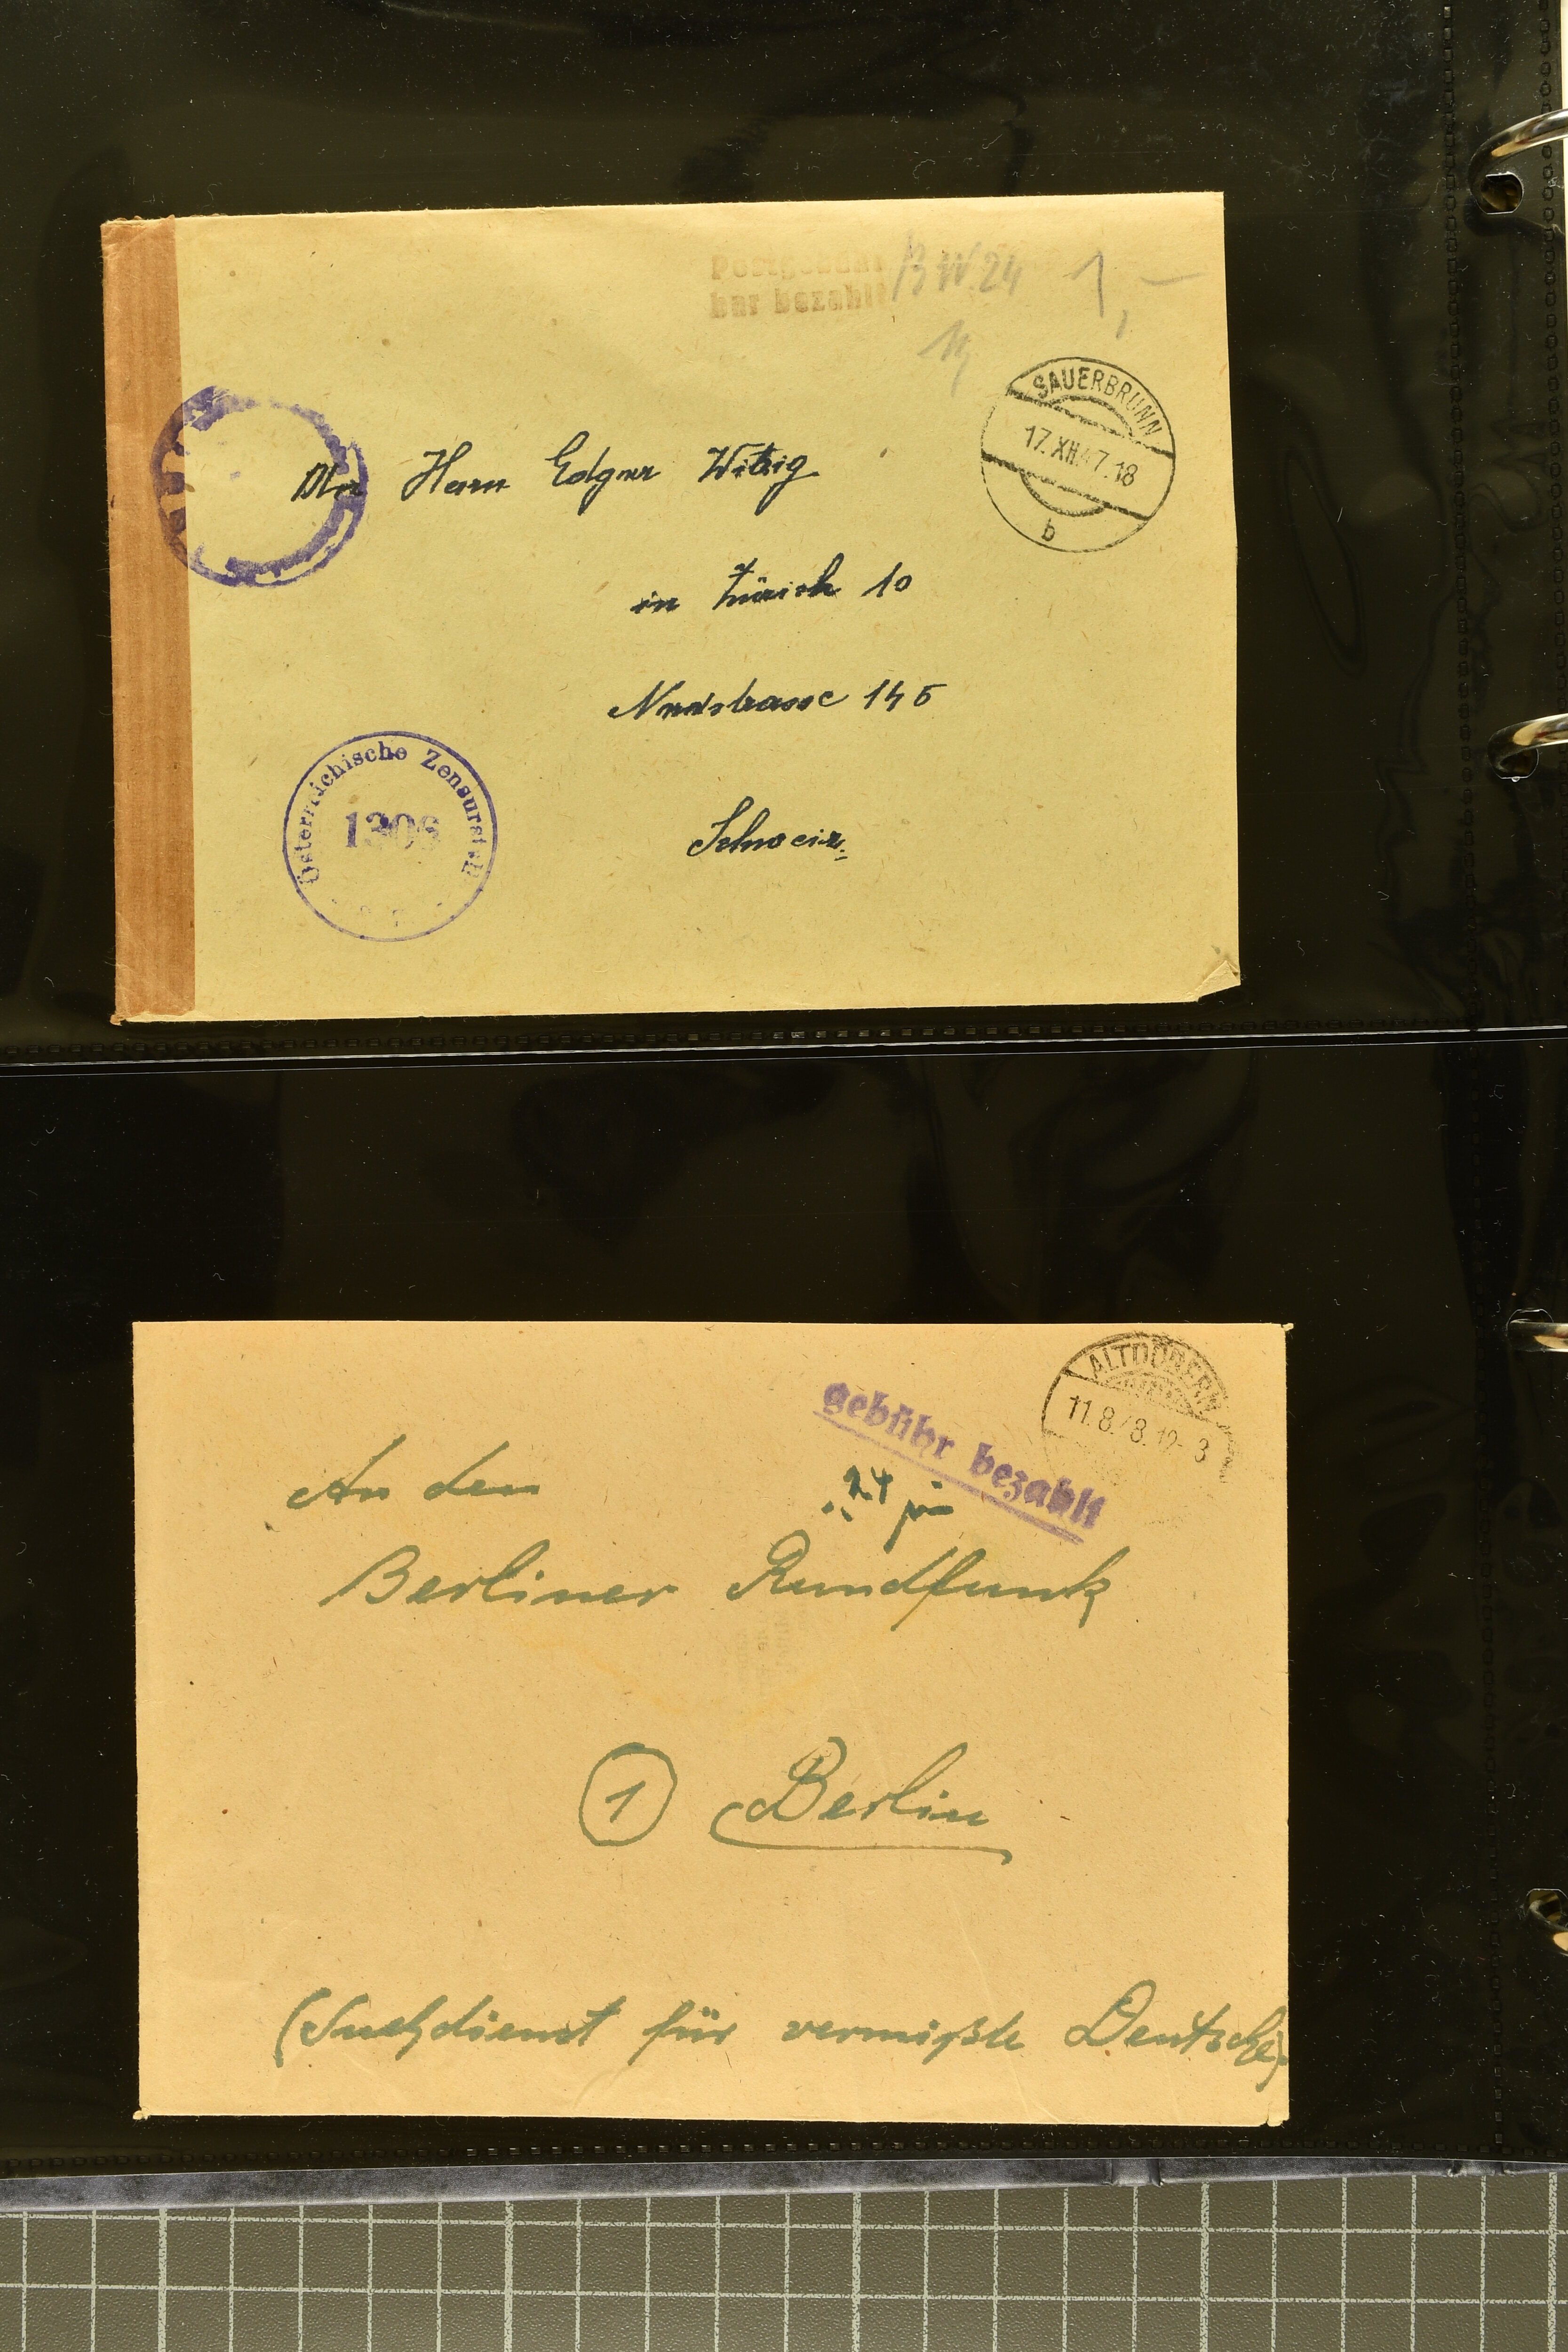 Postgebühr
bar bezahlt
BW.24
1,-
SAUERBRUNN
17.XII.47.18
b
An Herrn Edgar Witzig
in Zürich 10
Nordstrasse 145
Schweiz.
Österreichische Zensurstelle
1306
ALTDÖBERN
11.8.48.12-
gebühr bezahlt
24
An den
Berliner Rundfunk
1 Berlin
(Suchdienst für vermißte Deutsche)